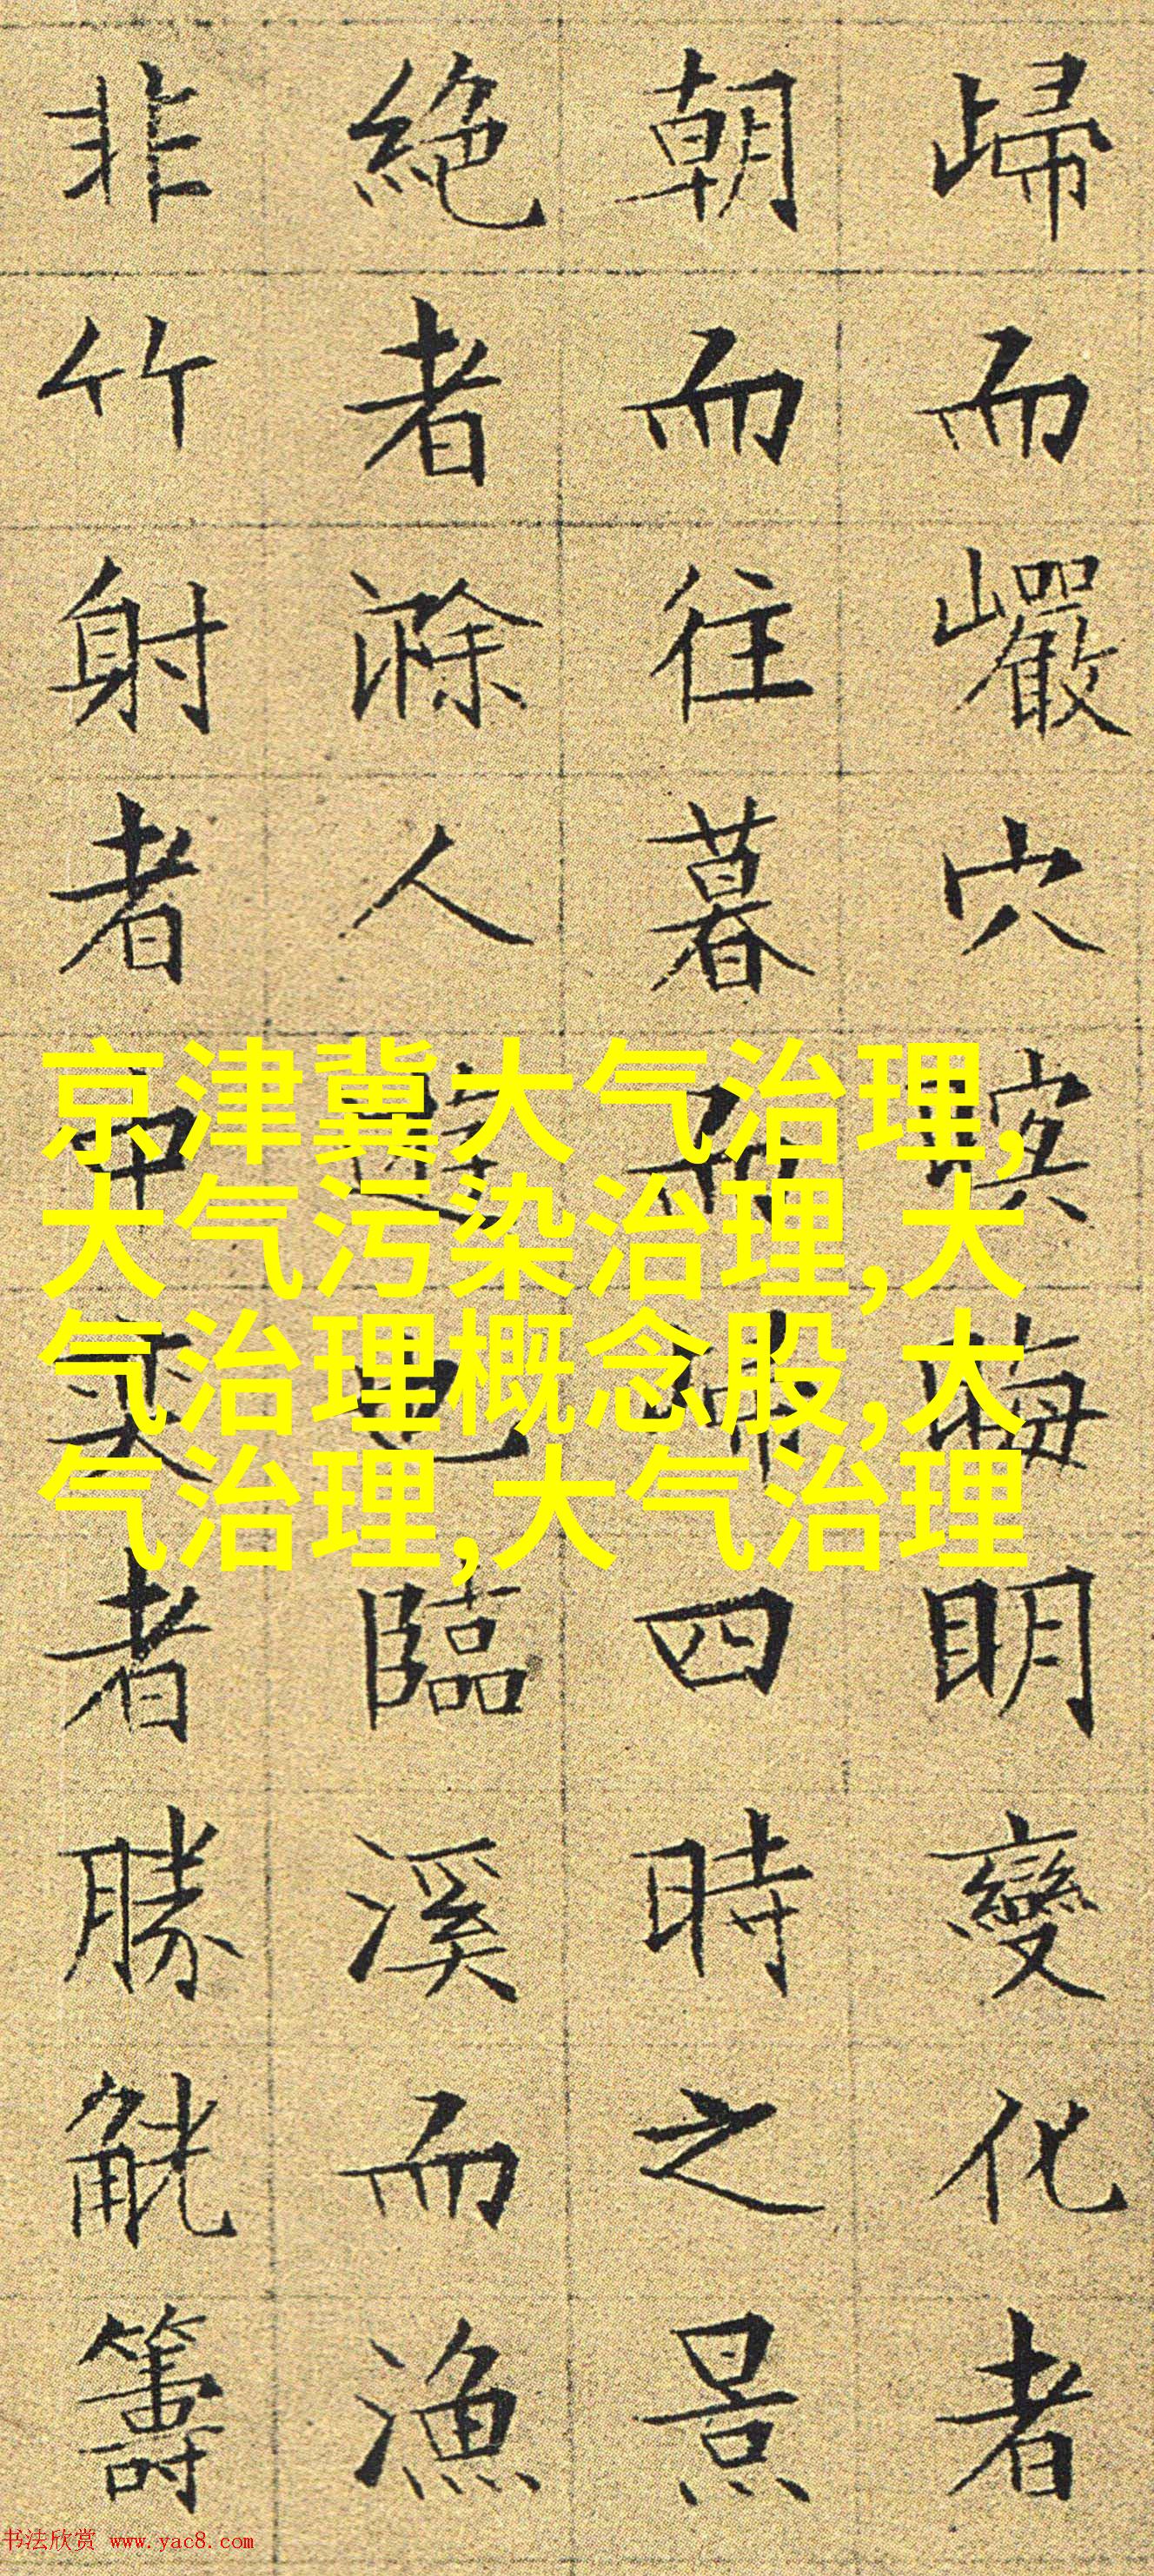 㱕而巗穴暝晦明變化者
朝而往暮而㱕四時之景
絶者滁人遊也臨溪而漁
非竹射者中奕者勝觥籌
京津冀大气治理,
大气污染治理,大
气治理概念股,大
气治理,大气治理
书法欣赏 www.yac8.com